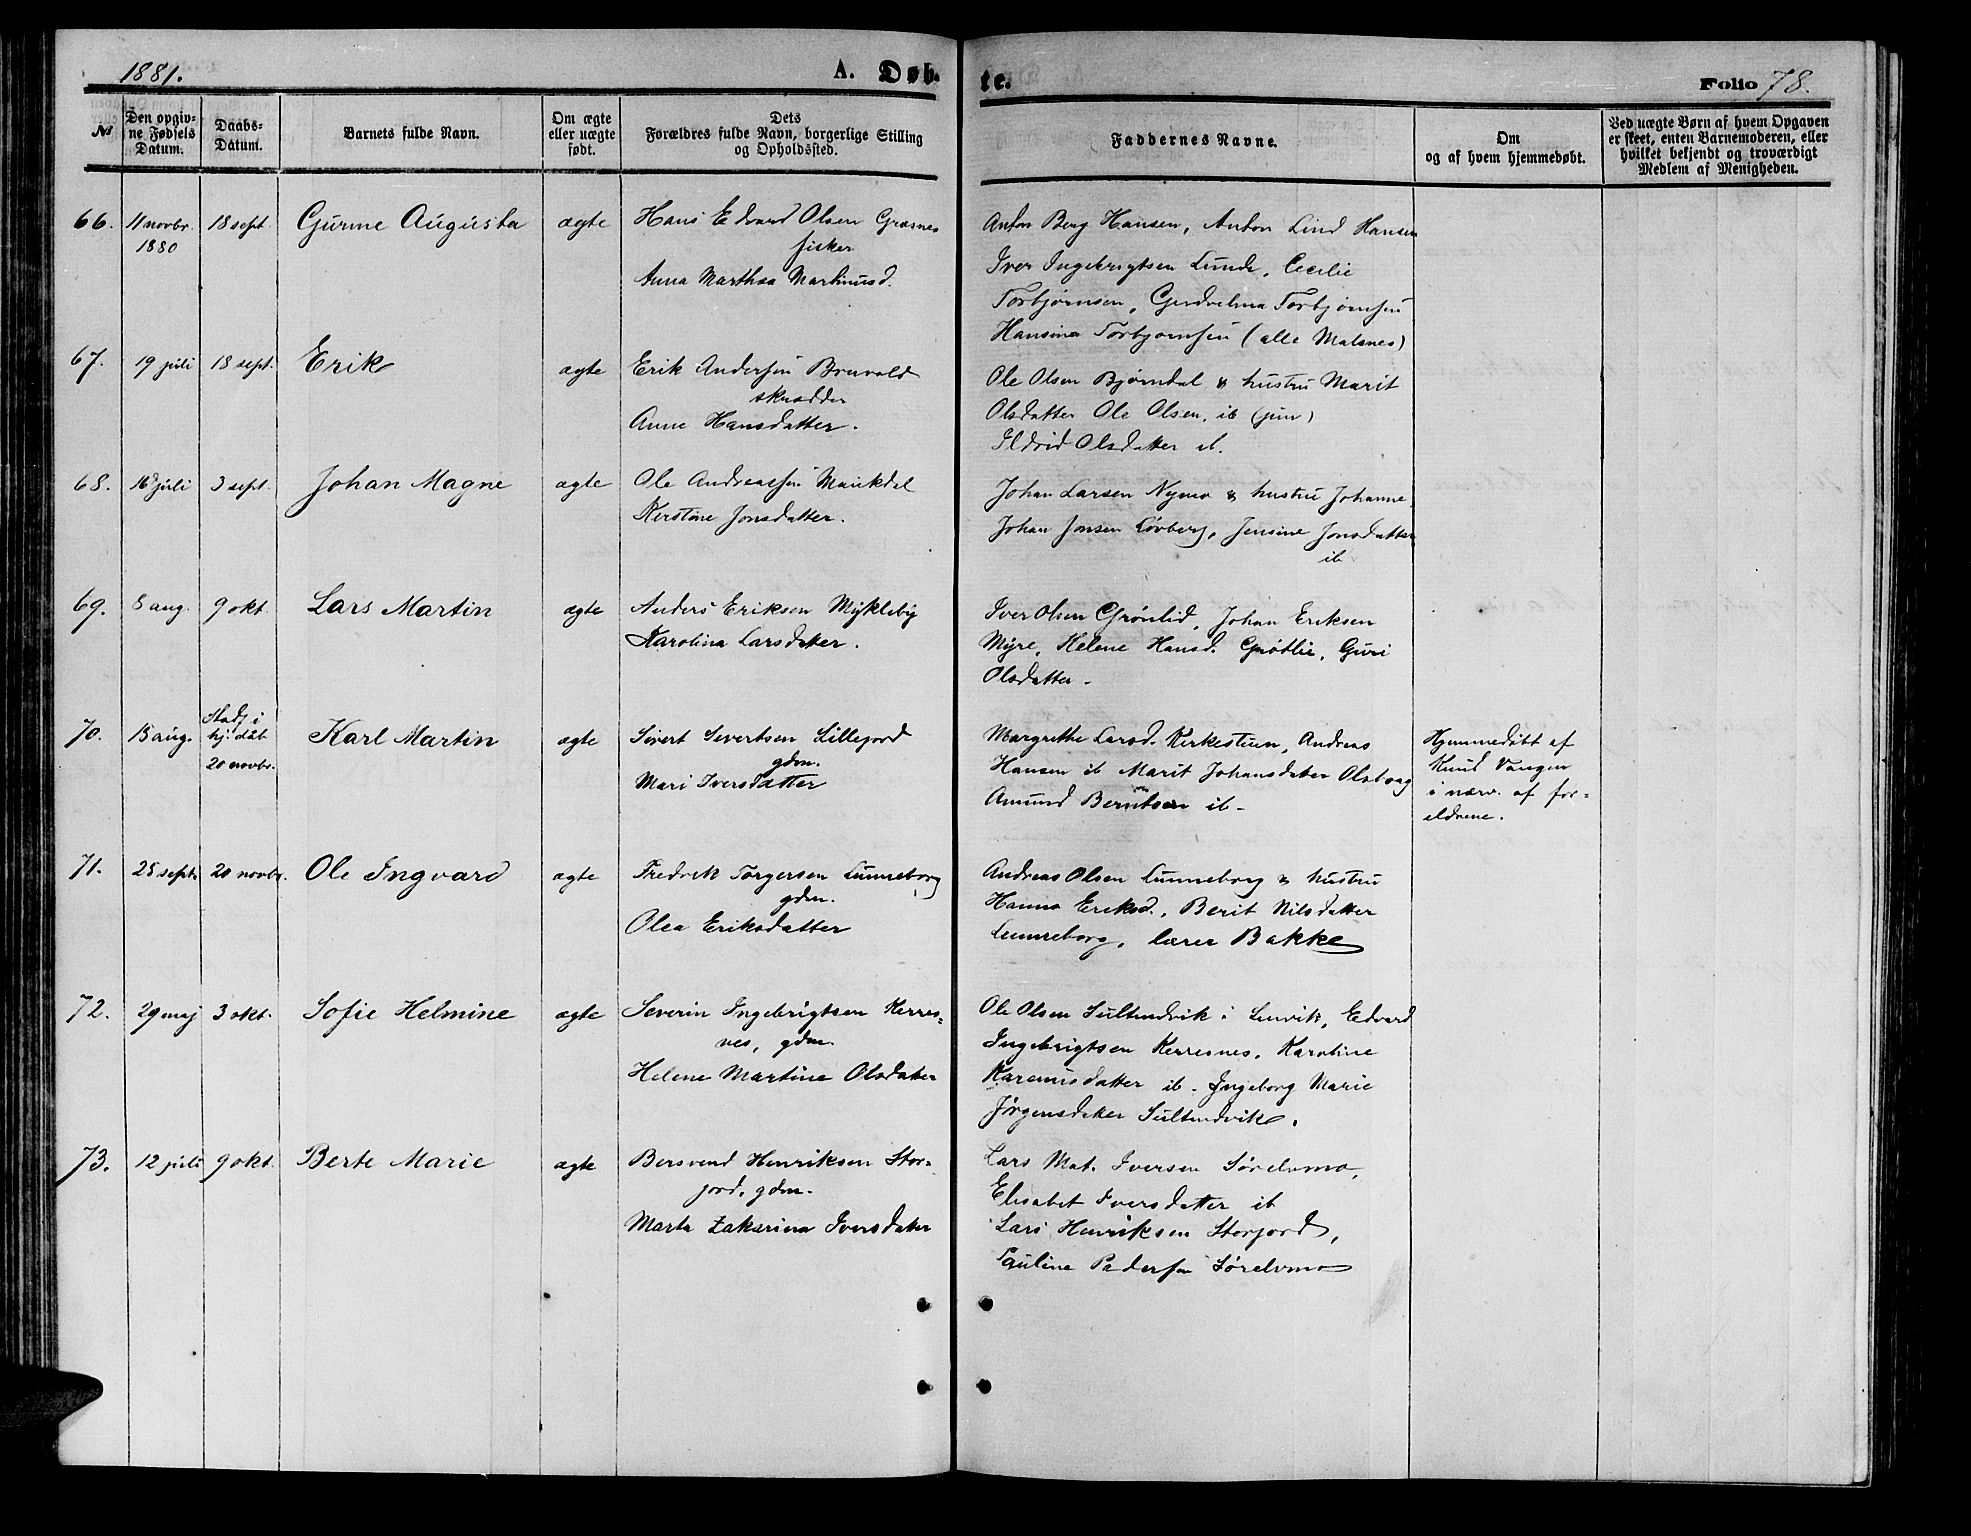 1881.
A. Døb-
te.
Folio 78.
No
Den opgiv-
ne Fødsels
Datum.
Daabs-
Datum.
Barnets fulde Navn.
Om ægte
eller uægte
født.
Dets
Forældres fulde Navn, borgerlige Stilling
og Opholdssted.
Faddernes Navne.
Om
og af hvem hjemmedøbt.
Ved uægte Børn af hvem Opgaven
er skeet, enten Barnemoderen, eller
hvilket bekjendt og troværdigt
Medlem af Menigheden.
66. 11 novbr. 18 sept. Augusta ægte Hans Edvard Olsen Græsnes
1880 fisker
Anna Marthea Martinusd.
Anton Berg Hansen, Anton Lind Hansen
Iver Ingebrigtsen Lunde, Cecilie
Torbjørnsen, Torbjørnsen
Hansine Torbjørnsen (alle Malsnes)
67. 19 juli 18 sept. Erik ægte Erik Andersen Bruvold
skrædder
Anne Hansdatter.
Ole Olsen Bjørndal & hustru Marit
Olsdatter Ole Olsen, ib (jun)
Ildrid Olsdatter ib.
68. 16 juli 3 sept. Johan Magne ægte Ole Andreassen Maukdal
Kerstine Jonsdatter.
Johan Larsen Nymo & hustru Johanne
Johan Jonsen Løvberg, Jensine Jonsdatter
ib
69. 8 aug. 9 okt. Lars Martin ægte Anders Eriksen Mykleby
Karolina Larsdatter.
Iver Olsen Grønlid, Johan Eriksen
Myre, Helene Hansd. Grøtlie, Guri
Olsdatter.
70. 15 aug. Stadf i
hj. dåb
20 novbr. Karl Martin ægte Sivert Sivertsen Lillefjord
gdm.
Mari Iversdatter
Margrethe Larsd. Kirkestuen, Andreas
Hansen ib Marit Johansdatter Olsborg
Amund Berntsen ib.
Hjemmedøbt af
Knud Vangen
i nærv. af for-
eldrene.
71. 28 sept. 20 novbr. Ole Ingvard ægte Fredrik Torgersen Lunneborg
gdm.
Olea Eriksdatter
Andreas Olsen Lunneborg & hustru
Hanna Eriksd., Berit Nilsdatter
Lunneborg, lærer Bakke
72. 29 maj 3 okt. Sofie Helmine ægte Severin Ingebrigtsen Kerres-
nes, gdm.
Helene Martine Olsdatter
Ole Olsen Sultindvik i Lenvik, Edvard
Ingebrigtsen Kerresnes, Karoline
Karenusdatter ib. Ingeborg Marie
Jørgensdatter Sultindvik.
73. 12 juli 9 okt. Berte Marie ægte Bersvend Henriksen Stor-
jord, gdm.
Marta Zakarina Iversdatter
Lars Mat. Iversen Sørelvmo,
Elisabet Iversdatter ib
Lars Henriksen Storjord,
Pauline Pedersen Sørelvmo